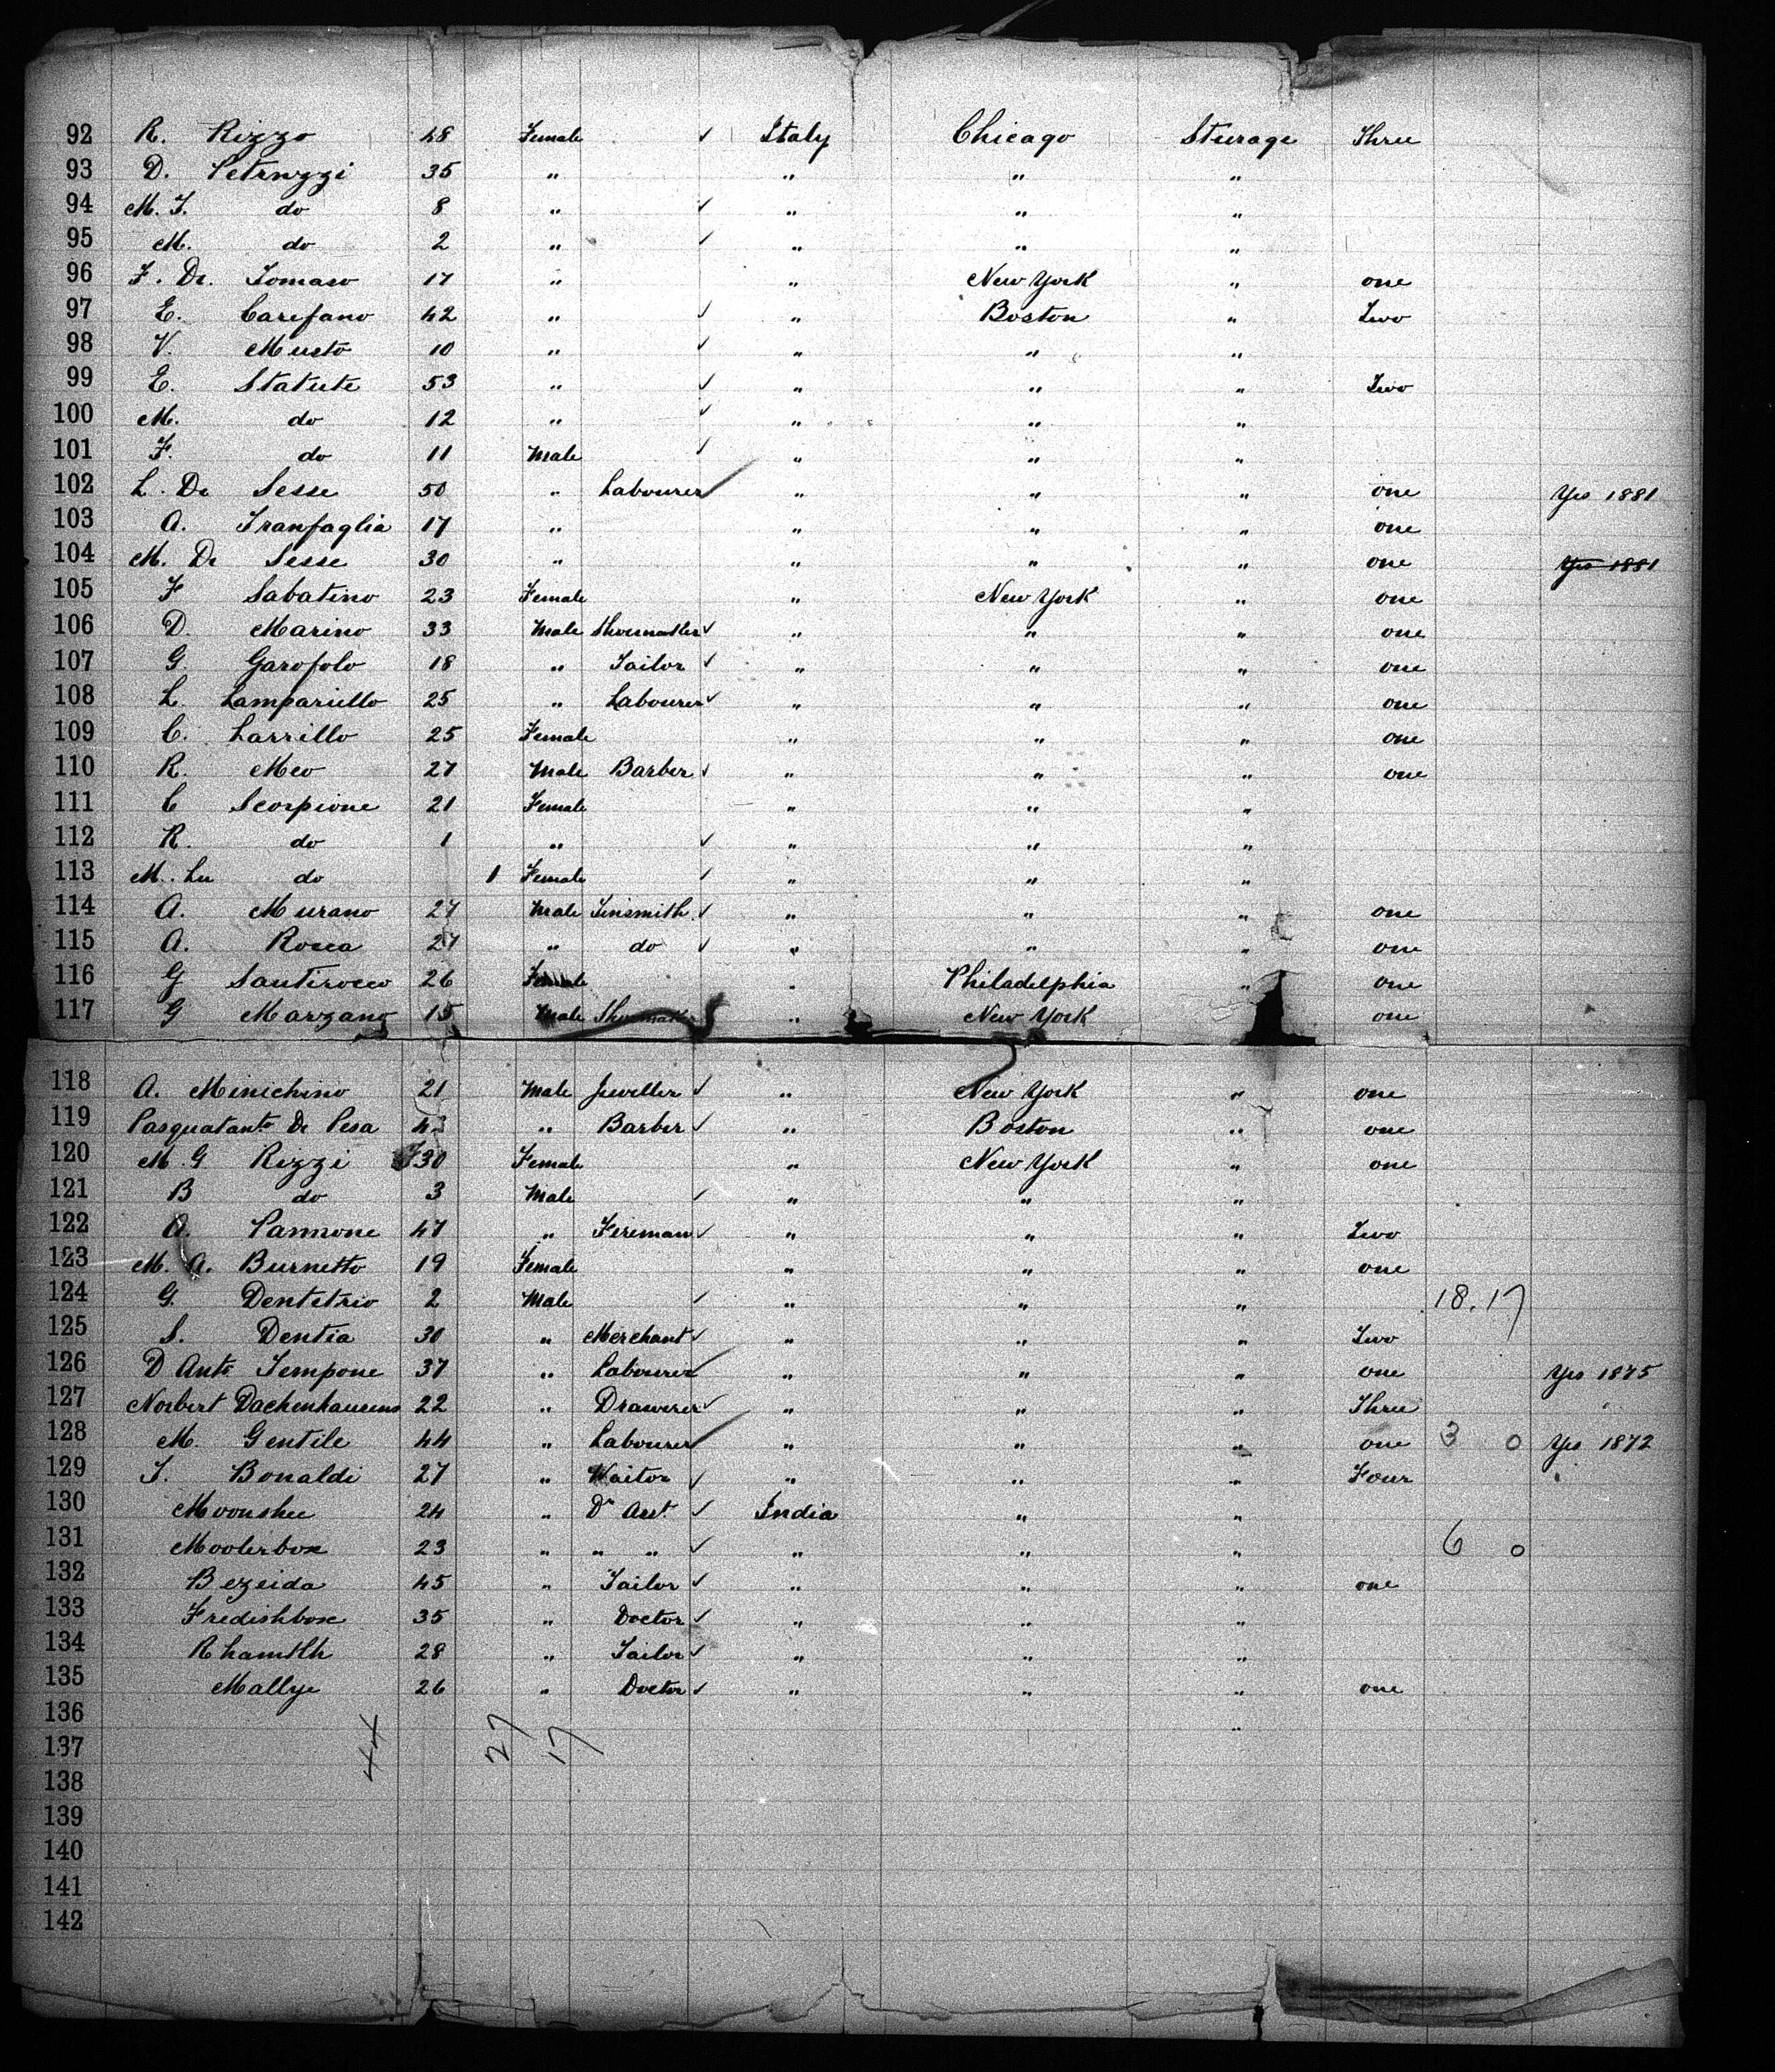 92 R. Rizzo 48 Female ✓ Italy Chicago Steerage Three
93 D. Petruzzi 35 " " " "
94 M. T. do 8 " ✓ " " "
95 M. do 2 " ✓ " " "
96 F. De Tomaso 17 " " New York " one
97 E. Carefano 42 " ✓ " Boston " Two
98 V. Musto 10 " ✓ " " "
99 E. Statute 53 " ✓ " " " Two
100 M. do 12 " ✓ " " "
101 F. do 11 Male ✓ " " "
102 L. De Sesse 50 " Labourer ✓ " " " one Yes 1881
103 A. Tranfaglia 17 " " " " one
104 M. De Sesse 30 " " " " one Yes 1881
105 F Sabatino 23 Female " New York " one
106 D. Marino 33 Male Shoemaker ✓ " " " one
107 G. Garofolo 18 " Tailor ✓ " " " one
108 L. Lampariello 25 " Labourer ✓ " " " one
109 C. Larrillo 25 Female " " " one
110 R. Meo 27 Male Barber ✓ " " " one
111 C Scorpione 21 Female " " "
112 R. do 1 " ✓ " " "
113 M. Lu do 1 Female ✓ " " "
114 A. Murano 27 Male Tinsmith ✓ " " " one
115 A. Rosca 27 " do ✓ " " " one
116 G Santirocco 26 Female " Philadelphia " one
117 G Marzano 15 Male Shoemaker " New York one
118 A. Minichino 21 Male Jeweller ✓ " New York " one
119 Pasquatanto De Pesa 43 " Barber ✓ " Boston " one
120 M. G Rizzi 30 Female " New York " one
121 B do 3 Male ✓ " " "
122 A. Pannone 47 " Fireman ✓ " " " Two
123 M. A. Burnetto 19 Female " " " one
124 G. Dentetrio 2 Male ✓ " " " 18.17
125 S. Dentia 30 " Merchant ✓ " " " Two
126 D Anto Tempone 37 " Labourer ✓ " " " one Yes 1875
127 Norbert 22 " Drawerer ✓ " " " Three
128 M. Gentile 44 " Labourer ✓ " " " one 3 0 Yes 1872
129 T. Bonaldi 27 " Waitor ✓ " " " Four
130 Moonshee 24 " Dr Asst. ✓ India " "
131 Moolerbox 23 " " " ✓ " " " 6 0
132 Bezeida 45 " Tailor ✓ " " " one
133 Fredishbox 35 " Doctor ✓ " " "
134 Rhamtth 28 " Tailor ✓ " " "
135 Mallye 26 " Doctor ✓ " " " one
136 "
137 44 27 17
138
139
140
141
142